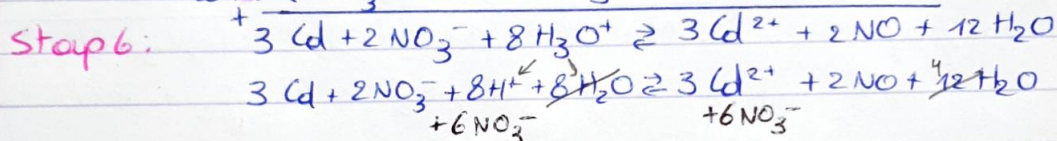 +
Stap 6: 3 Cd + 2 NO₃⁻ + 8 H₃O⁺ ⇄ 3 Cd²⁺ + 2 NO + 12 H₂O
3 Cd + 2 NO₃⁻ + 8 H⁺ + 8 H₂O ⇄ 3 Cd²⁺ + 2 NO + 4 12 H₂O
+6 NO₃⁻ +6 NO₃⁻